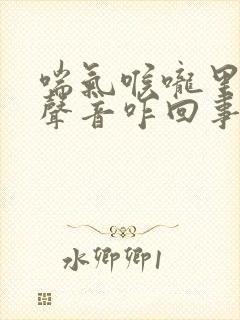 喘氣喉嚨里
聲音咋回事
水卿卿1